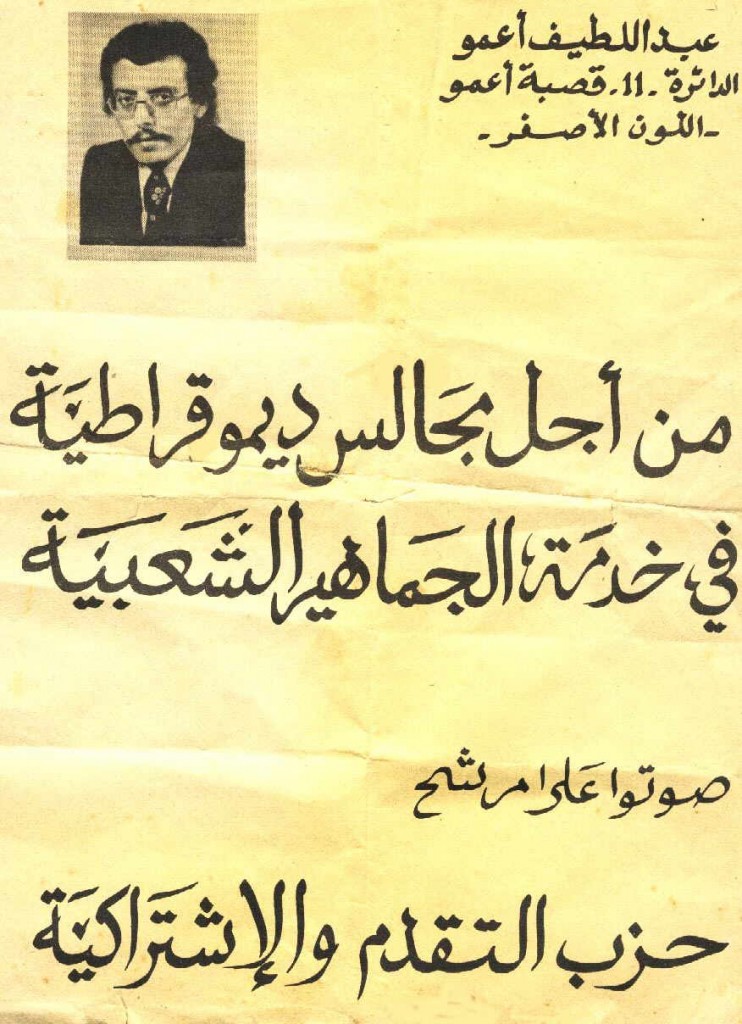 عبد اللطيف أعمو
الدائرة -11- قصبة أعمو
- اللون الأصفر -
من أجل مجَالس ديموقراطيَة
في خدمَة الجمَاهير الشَعبيَة
صوتوا عَلى مرشح
حزب التقدم والإشتَراكيَة